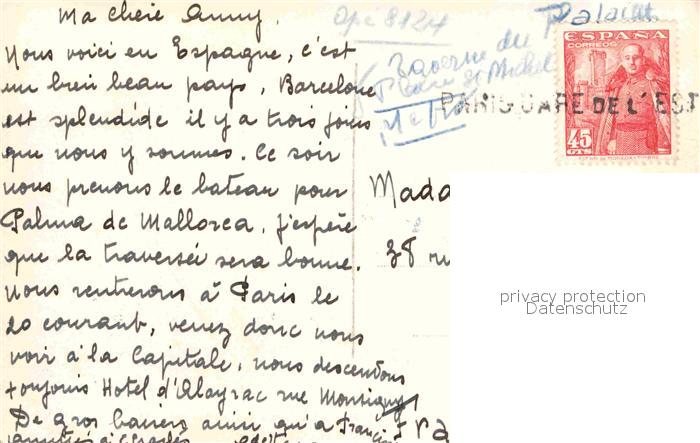 Ma chère Anny,
Nous voici en Espagne, c'est
un bien beau pays, Barcelone
est splendide il y a trois jours
que nous y sommes. Ce soir
nous prenons le bateau pour
Palma de Mallorca, j'espère
que la traversée sera bonne.
Nous rentrerons à Paris le
20 courant, venez donc nous
voir à la Capitale, nous descendons
toujours Hotel d'Alayrac rue Monsigny
De gros baisers ainsi qu'à Francine
amitiés à Charles
Opé 8124
Palais
Taverne du
Place St Michel
Métro
ESPAÑA
CORREOS
45
CTS
PARIS GARE DE L'EST
Mada
38 ru
Fra
privacy protection
Datenschutz